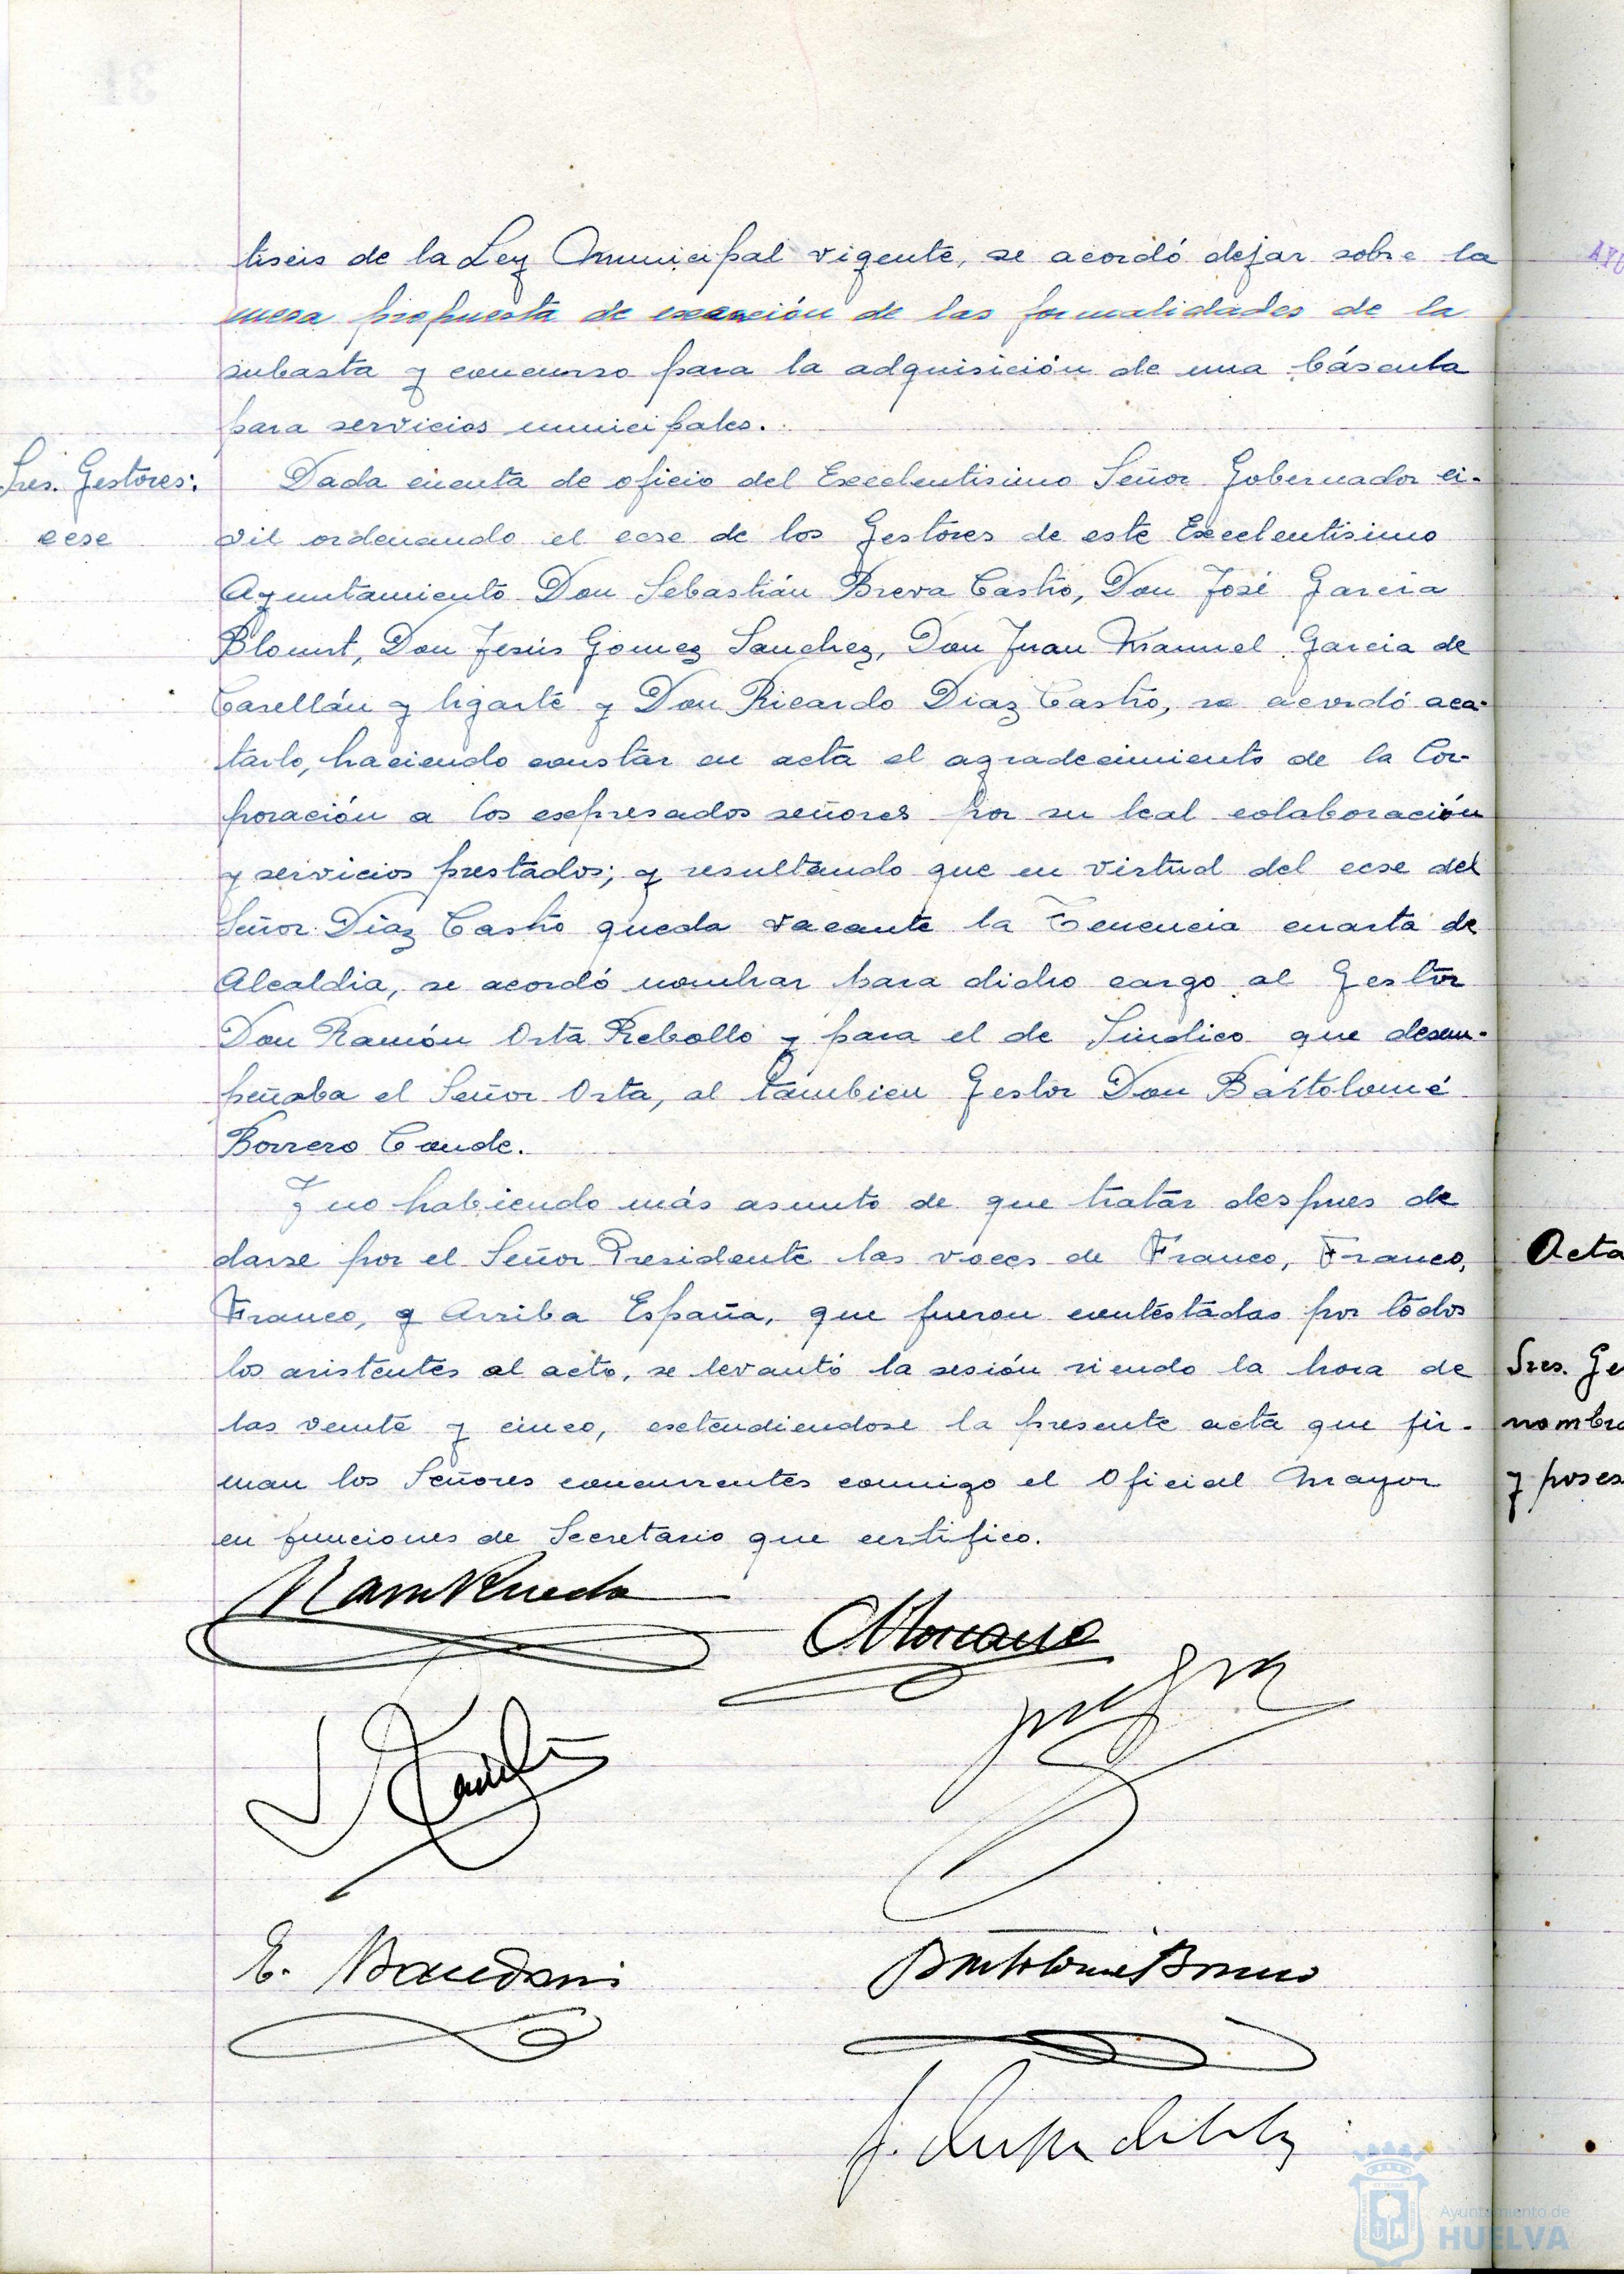 tiseis de la Ley Municipal vigente, se acordó dejar sobre la
mesa propuesta de exención de las formalidades de la
subasta y concurso para la adquisición de una báscula
para servicios municipales.
Sres. Gestores:
cese
Dada cuenta de oficio del Excelentisimo Señor Gobernador ci-
vil ordenando el cese de los Gestores de este Excelentisimo
Ayuntamiento Don Sebastián Breva Castro, Don José Garcia
Blount, Don Jesús Gomez Sanchez, Don Juan Manuel Garcia de
Casellán y Ugarte y Don Ricardo Diaz Castro, se acordó aca-
tarlo, haciendo constar en acta el agradecimiento de la Cor-
poración a los expresados señores por su leal colaboración
y servicios prestados; y resultando que en virtud del cese del
Señor Diaz Castro queda vacante la Tenencia cuarta de
Alcaldia, se acordó nombrar para dicho cargo al Gestor
Don Ramón Orta Rebollo y para el de Sindico que desem-
peñaba el Señor Orta, al tambien Gestor Don Bartolomé
Borrero Conde.
Y no habiendo más asunto de que tratar despues de
darse por el Señor Presidente las voces de Franco, Franco,
Franco, y Arriba España, que fueron contestadas por todos
los asistentes al acto, se levantó la sesión siendo la hora de
las veinte y cinco, extendiendose la presente acta que fir-
man los Señores concurrentes conmigo el Oficial Mayor
en funciones de Secretario que certifico.
E.
Bartolomé Borrero
J.
AYU
Acta
Sres. Ge
nombra
y poses
Ayuntamiento de
HUELVA